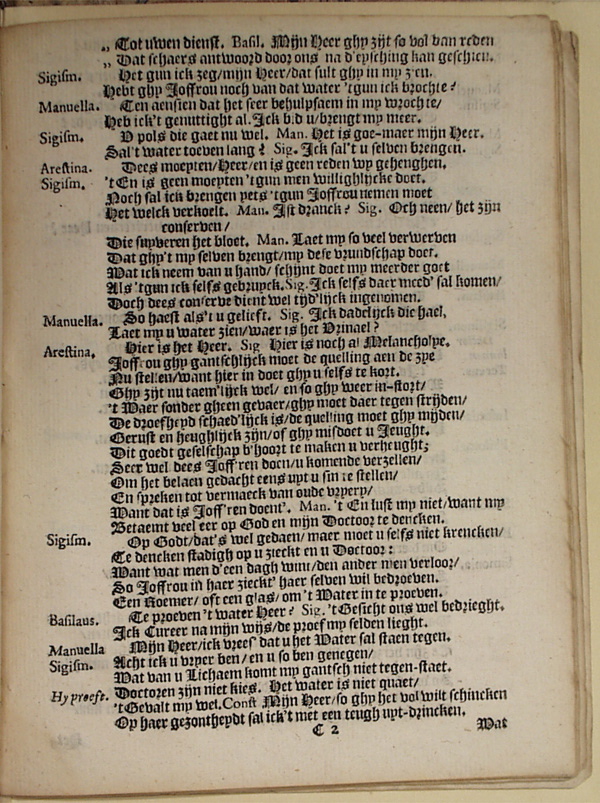 „ Tot uwen dienst. Basil. Mijn Heer ghy zijt so vol van reden
„ Dat schaers antwoord door ons na d'eysching kan geschien.
Sigism. Het gun ick zeg/mijn Heer/dat sult ghy in my zien.
Hebt ghy Joffrou noch van dat water 'tgun ick brochte?
Manuella. Ten aensien dat het seer behulpsaem in my wrochte/
Heb ick't genuttight al. Ick bid u/brengt my meer.
Sigism. V pols die gaet nu wel. Man. Het is goe-maer mijn Heer.
Sal't water toeven lang? Sig. Ick sal't u selven brengen.
Arestina. Dees moeyten/Heer/en is geen reden wy gehenghen.
Sigism. 't En is geen moeyten 'tgun men willighlijcke doet.
Noch sal ick brengen yets 'tgun Joffrou nemen moet
Het welck verkoelt. Man. Ist dranck? Sig. Och neen/ het zijn
conserven/
Die suyveren het bloet. Man. Laet my so veel verwerven
Dat ghy't my selven brengt/my dese vrundschap doet.
Wat ick neem van u hand/ schijnt doet my meerder goet
Als 'tgun ick selfs gebruyck. Sig. Ick selfs daer meed' sal komen/
Doch dees conserve dient wel tijd'lijck ingenomen.
Manuella. So haest als't u gelieft. Sig. Ick dadelijck die hael,
Laet my u water zien/waer is het Vrinael?
Arestina. Hier is het Heer. Sig Hier is noch al Melancholye.
Joffrou ghy gantschlijck moet de quelling aen de zye
Nu stellen/want hier in doet ghy u selfs te kort.
Ghy zijt nu taem'lijck wel/ en so ghy weer in-stort/
't Waer sonder gheen gevaer/ghy moet daer tegen strijden/
De droefheyd schaed'lijck is/de quelling moet ghy mijden/
Gerust en heughlijck zijn/of ghy misdoet u Jeught.
Dit goedt geselschap b'hoort te maken u verheught;
Seer wel dees Joff'ren doen/u komende verzellen/
Om het belaen gedacht eens uyt u sin te stellen/
En spreken tot vermaeck van oude vryery/
Want dat is Joff'ren doent'. Man. 't En lust my niet/want my
Betaemt veel eer op God en mijn Doctoor te dencken.
Sigism. Op Godt/dat's wel gedaen/ maer moet u selfs niet krencken/
Te dencken stadigh op u zieckt en u Doctoor:
Want wat men d'een dagh wint/den ander men verloor/
So Joffrou in haer zieckt' haer selven wil bedroeven.
Een Roemer/ oft een glas/ om 't Water in te proeven.
Basilaus. Te proeven 't water Heer? Sig. 't Gesicht ons wel bedrieght.
Ick Cureer na mijn wijs/de proef my selden lieght.
Manuella Mijn Heer/ick vrees' dat u het Water sal staen tegen.
Sigism. Acht ick u vryer ben/ en u so ben genegen/
Wat van u Lichaem komt my gantsch niet tegen-staet.
Hy proeft. Doctoren zijn niet kies. Het water is niet quaet/
't Gevalt my wel. Const Mijn Heer/so ghy het vol wilt schincken
Op haer gezontheydt sal ick't met een teugh uyt-drincken.
C 2 Wat